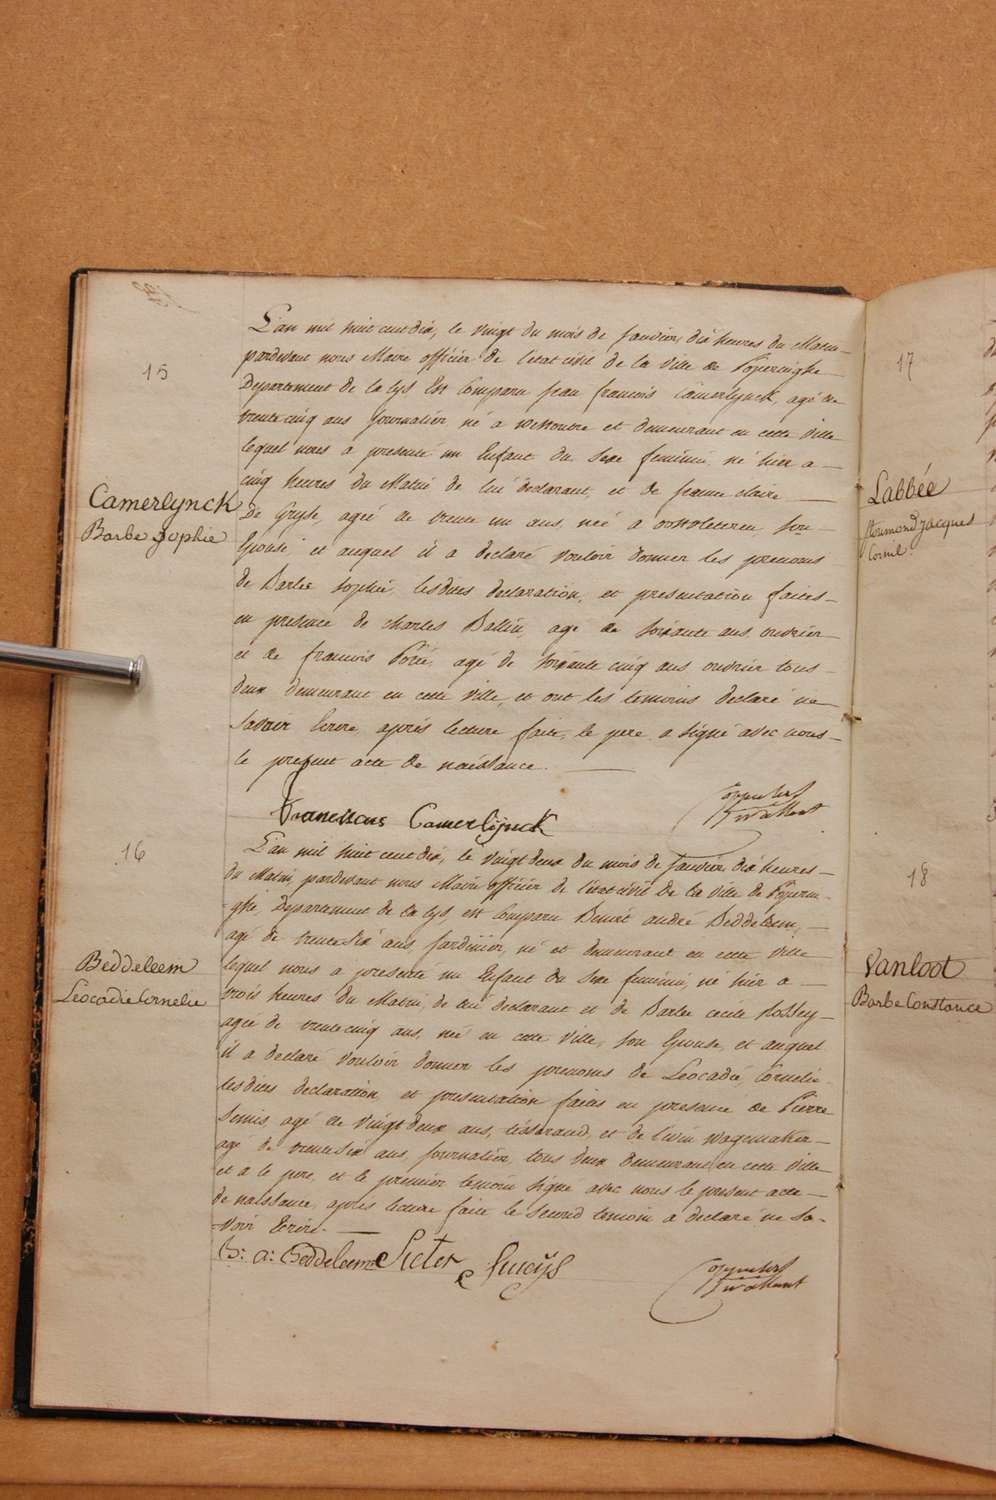 15
Camerlynck
Barbe Sophie
L'an mil huit cent dix, le vingt du mois de Janvier dix heures du Matin
pardevant nous Maire officier de l'etat civil de la ville de Poperinghe
Departement de la Lys Est Comparu Jean francois Camerlynck, agé de
trente cinq ans journalier, né a Westoutre et demeurant en cette ville
lequel nous a presenté un Enfant du Sexe feminin, né hier a
cinq heures du Matin de lui declarant, et de france claire
De Gryse, agée de trente un ans, née a son
Epouse, et auquel il a declaré vouloir donner les prenoms
de Barbe Sophie, lesdites declaration, et presentation faites
en presence de Charles Ballin, agé de soixante ans, ouvrier
et de francois agé de soixante cinq ans ouvrier tous
deux demeurant en cette ville, et ont les temoins declaré ne
savoir Ecrire, après lecture faite, le pere a signé avec nous
le present acte de naissance.
Franciscus Camerlijnck
16
Beddeleem
Leocadie Cornelie
L'an mil huit cent dix, le vingt deux du mois de Janvier dix heures
du Matin, pardevant nous Maire officier de l'etat civil de la ville de Poperin-
-ghe, Departement de la Lys est Comparu Benoit andré Beddeleem,
agé de trente six ans Jardinier, né et demeurant en cette ville
lequel nous a presenté un Enfant du Sexe feminin, né hier a
trois heures du Matin de lui declarant et de Barbe cecile Rossey
agée de trente cinq ans, née en cette ville, son Epouse, et auquel
il a declaré vouloir donner les prenoms de Leocadie Cornelie
lesdites declaration, et presentation faites en presence de Pierre
agé de vingt deux ans, tisserand, et de livin Wagemaker
agé de trente six ans, journalier, tous deux demeurant en cette ville
et a le pere, et le premier temoin signé avec nous le present acte
de naissance, après lecture faite le second temoin a declaré ne sa-
-voir Ecrire.
B: a: Beddeleem
17
Labbée
Jacques
Cornil
18
Vanloot
Barbe Constance